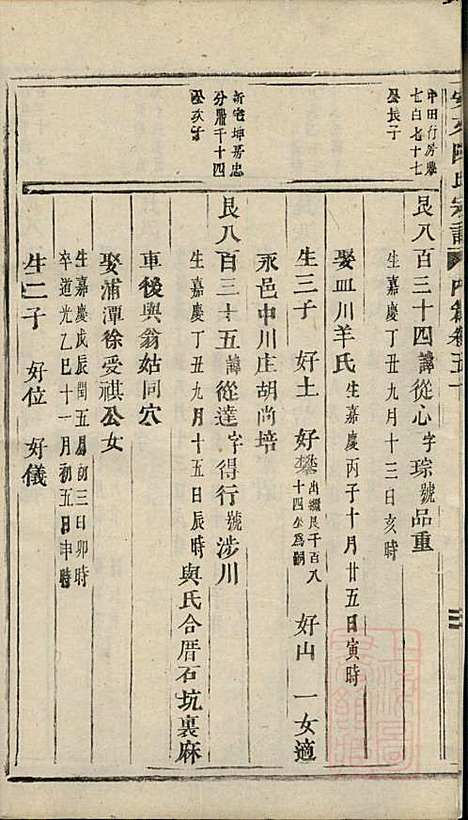 中田行房
七百七十七
公長子
艮八百三十四諱從心字琮號品重
生嘉慶丁丑九月十三日亥時
娶皿川羊氏生嘉慶丙子十月廿五日寅時
生三子 好土 好攀出繼艮千百八十四坐為嗣 好山 一女適
永邑中川庄胡尚培
新宅坤房忠
分爵千十四
公次子
艮八百三十五諱從達字得行號涉川
生嘉慶丁丑九月十五日辰時與氏合厝石坑裏麻
車後與翁姑同穴
娶浦潭徐受祺公女
生嘉慶戊辰閏五月初三日卯時
卒道光乙巳十一月初五日申時
生二子 好位 好儀
氏宗譜
內
卷五十